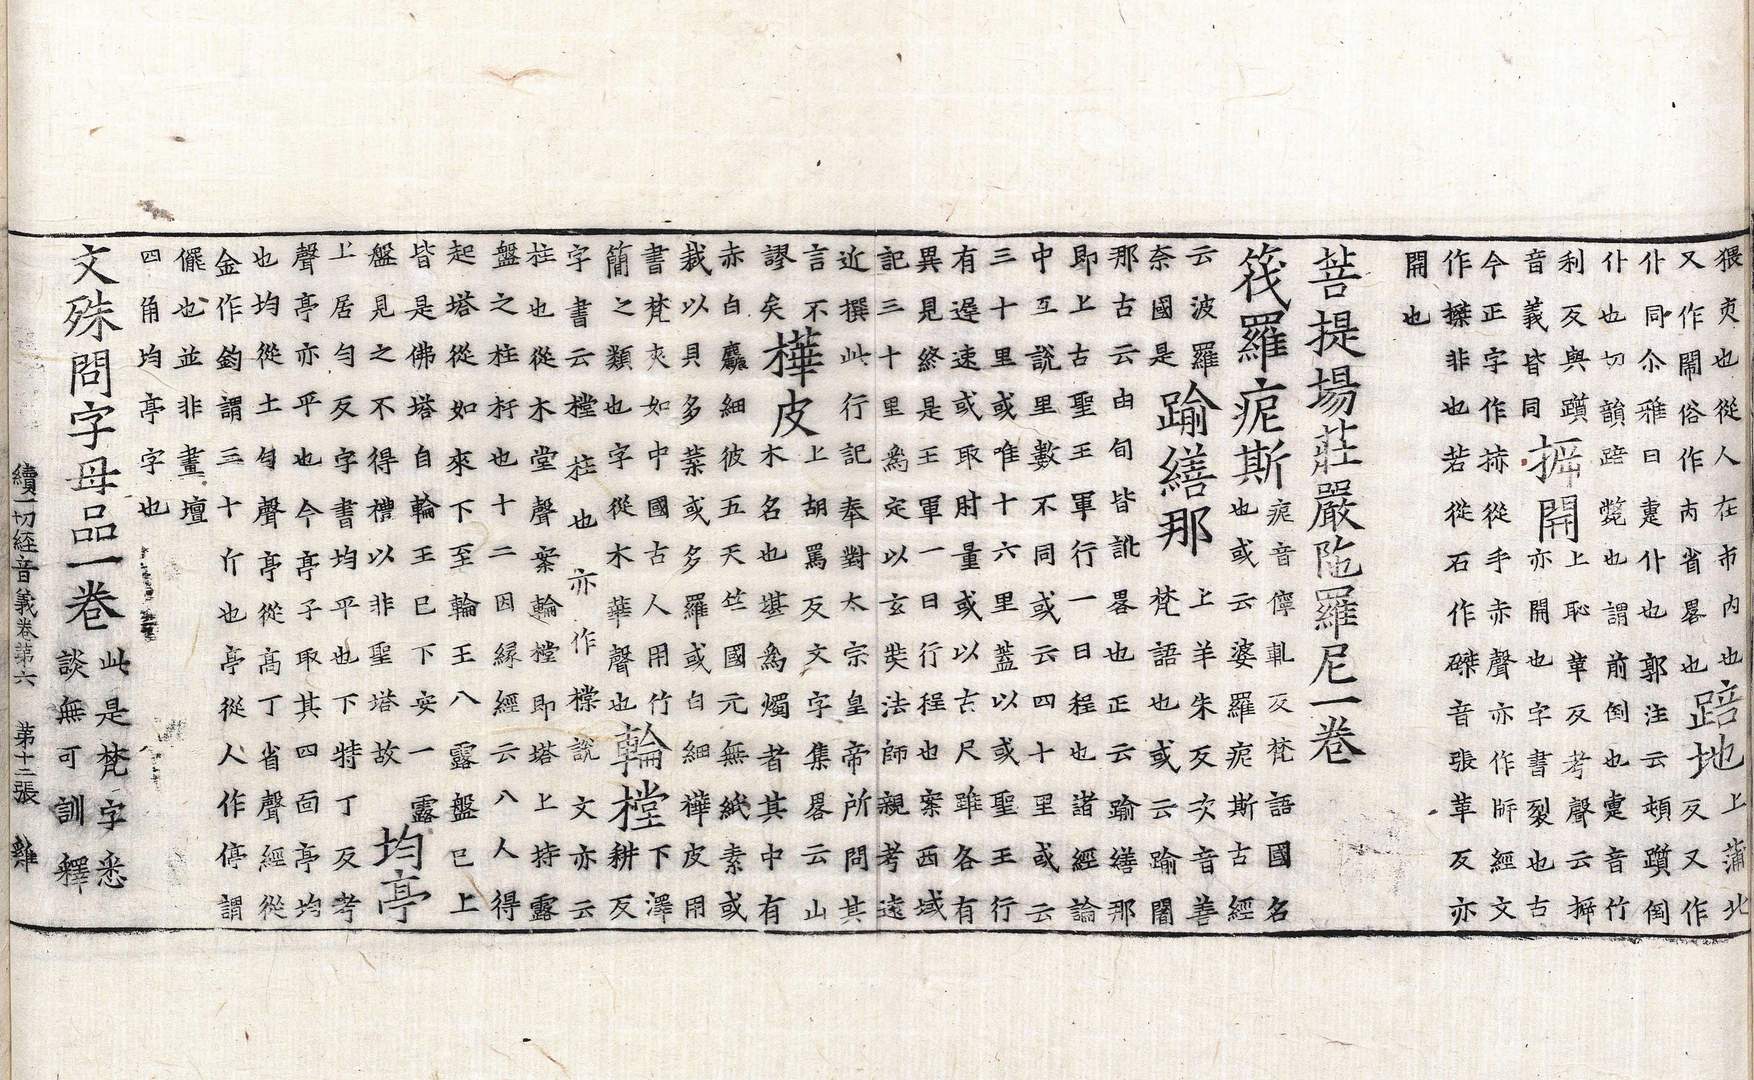 猥󠄀夾也從人在市内也
又作閙俗作𠕅省畧也
踣地
上蒲北
反又作
仆同尒雅曰疐仆也郭注云頓躓倒
仆也切韻踣斃也謂前倒也疐音竹
利反與躓
音義皆同
摒開
上恥革反考聲云摒
亦開也字書裂也古文
今正字作捇從手赤聲亦作㡿經文
作㩧非也若從石作磔音張革反亦
開也
菩提場莊嚴陁羅尼一卷
筏羅痆斯
痆音儜軋反梵語國名
也或云婆羅痆斯古經
云波羅
奈國是
踰繕那
上羊朱反次音善
梵語也或云踰闍
那古云由旬皆訛畧也正云踰繕那
即上古聖王軍行一日程也諸經論
中互說里數不同或云四十里或云
三十里或唯十六里蓋以或聖王行
有遲速或取肘量或以古尺雖各有
異見終是王軍一日行程也案西域
記三十里為定以玄奘法師親考遠
近撰此行記奉對太宗皇帝所問其
言不
謬矣
樺皮
上胡罵反文字集畧云山
木名也堪為燭者其中有
赤白麤細彼五天竺國元無紙素或
裁以貝多葉或多羅或白細樺皮用
書梵夾如中國古人用竹
簡之類也字從木華聲也
輪樘
下澤
耕反
字書云樘柱也亦作橖說文亦云
柱也從木堂聲案輪樘即塔上持露
盤之柱杅也十二因縁經云八人得
起塔從如來下至輪王八露盤已上
皆是佛塔自輪王已下安一露
盤見之不得禮以非聖塔故
均亭
上居勻反字書均平也下特丁反考
聲亭亦平也今亭子取其四面亭均
也均從土勻聲亭從高丁省聲經從
金作鈞謂三十斤也亭從人作停謂
儸也並非畫壇
四角均亭字也
文殊問字母品一卷
此是梵字悉
談無可訓釋
續一切經音義卷第六 第十二張 雞